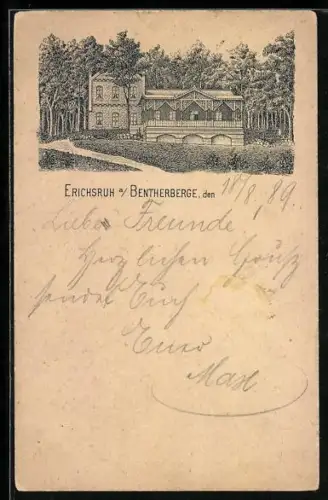 ERICHSRUH a/ BENTHERBERGE, den 18/8, 89.
Liebe Freunde
Herzlichen Gruß
sendet Euch
Euer